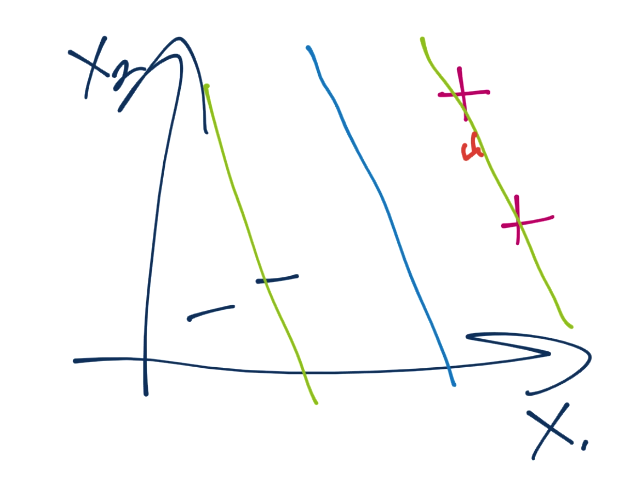 X2
X1